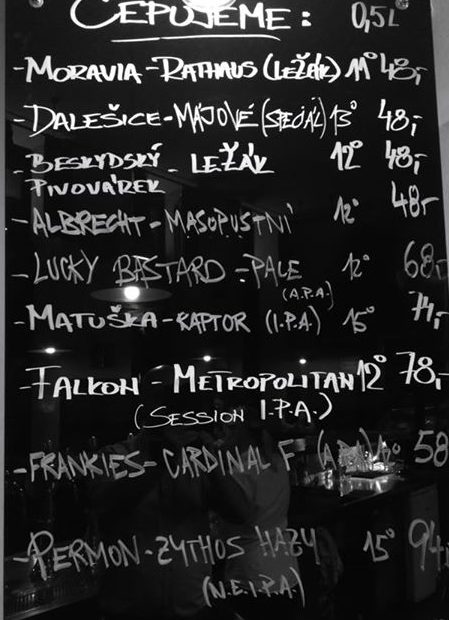 ČEPUJEME: 0,5L
-MORAVIA-RATHAUS (LEŽÁK) 11° 48,-
-DALEŠICE-MÁJOVÉ (SPECIÁL) 13° 48,-
-BESKYDSKÝ - LEŽÁK 12° 48,-
PIVOVÁREK
-ALBRECHT-MASOPUSTNÍ 12° 48,-
-LUCKY BASTARD -PALE 12° 68,-
(A.P.A.)
-MATUŠKA-RAPTOR (I.P.A.) 15° 74,-
-FALKON - METROPOLITAN 12° 78,-
(SESSION I.P.A.)
-FRANKIES-CARDINAL F 58
-PERMON-ZYTHOS HAZY 15° 94,-
(N.E.I.P.A.)